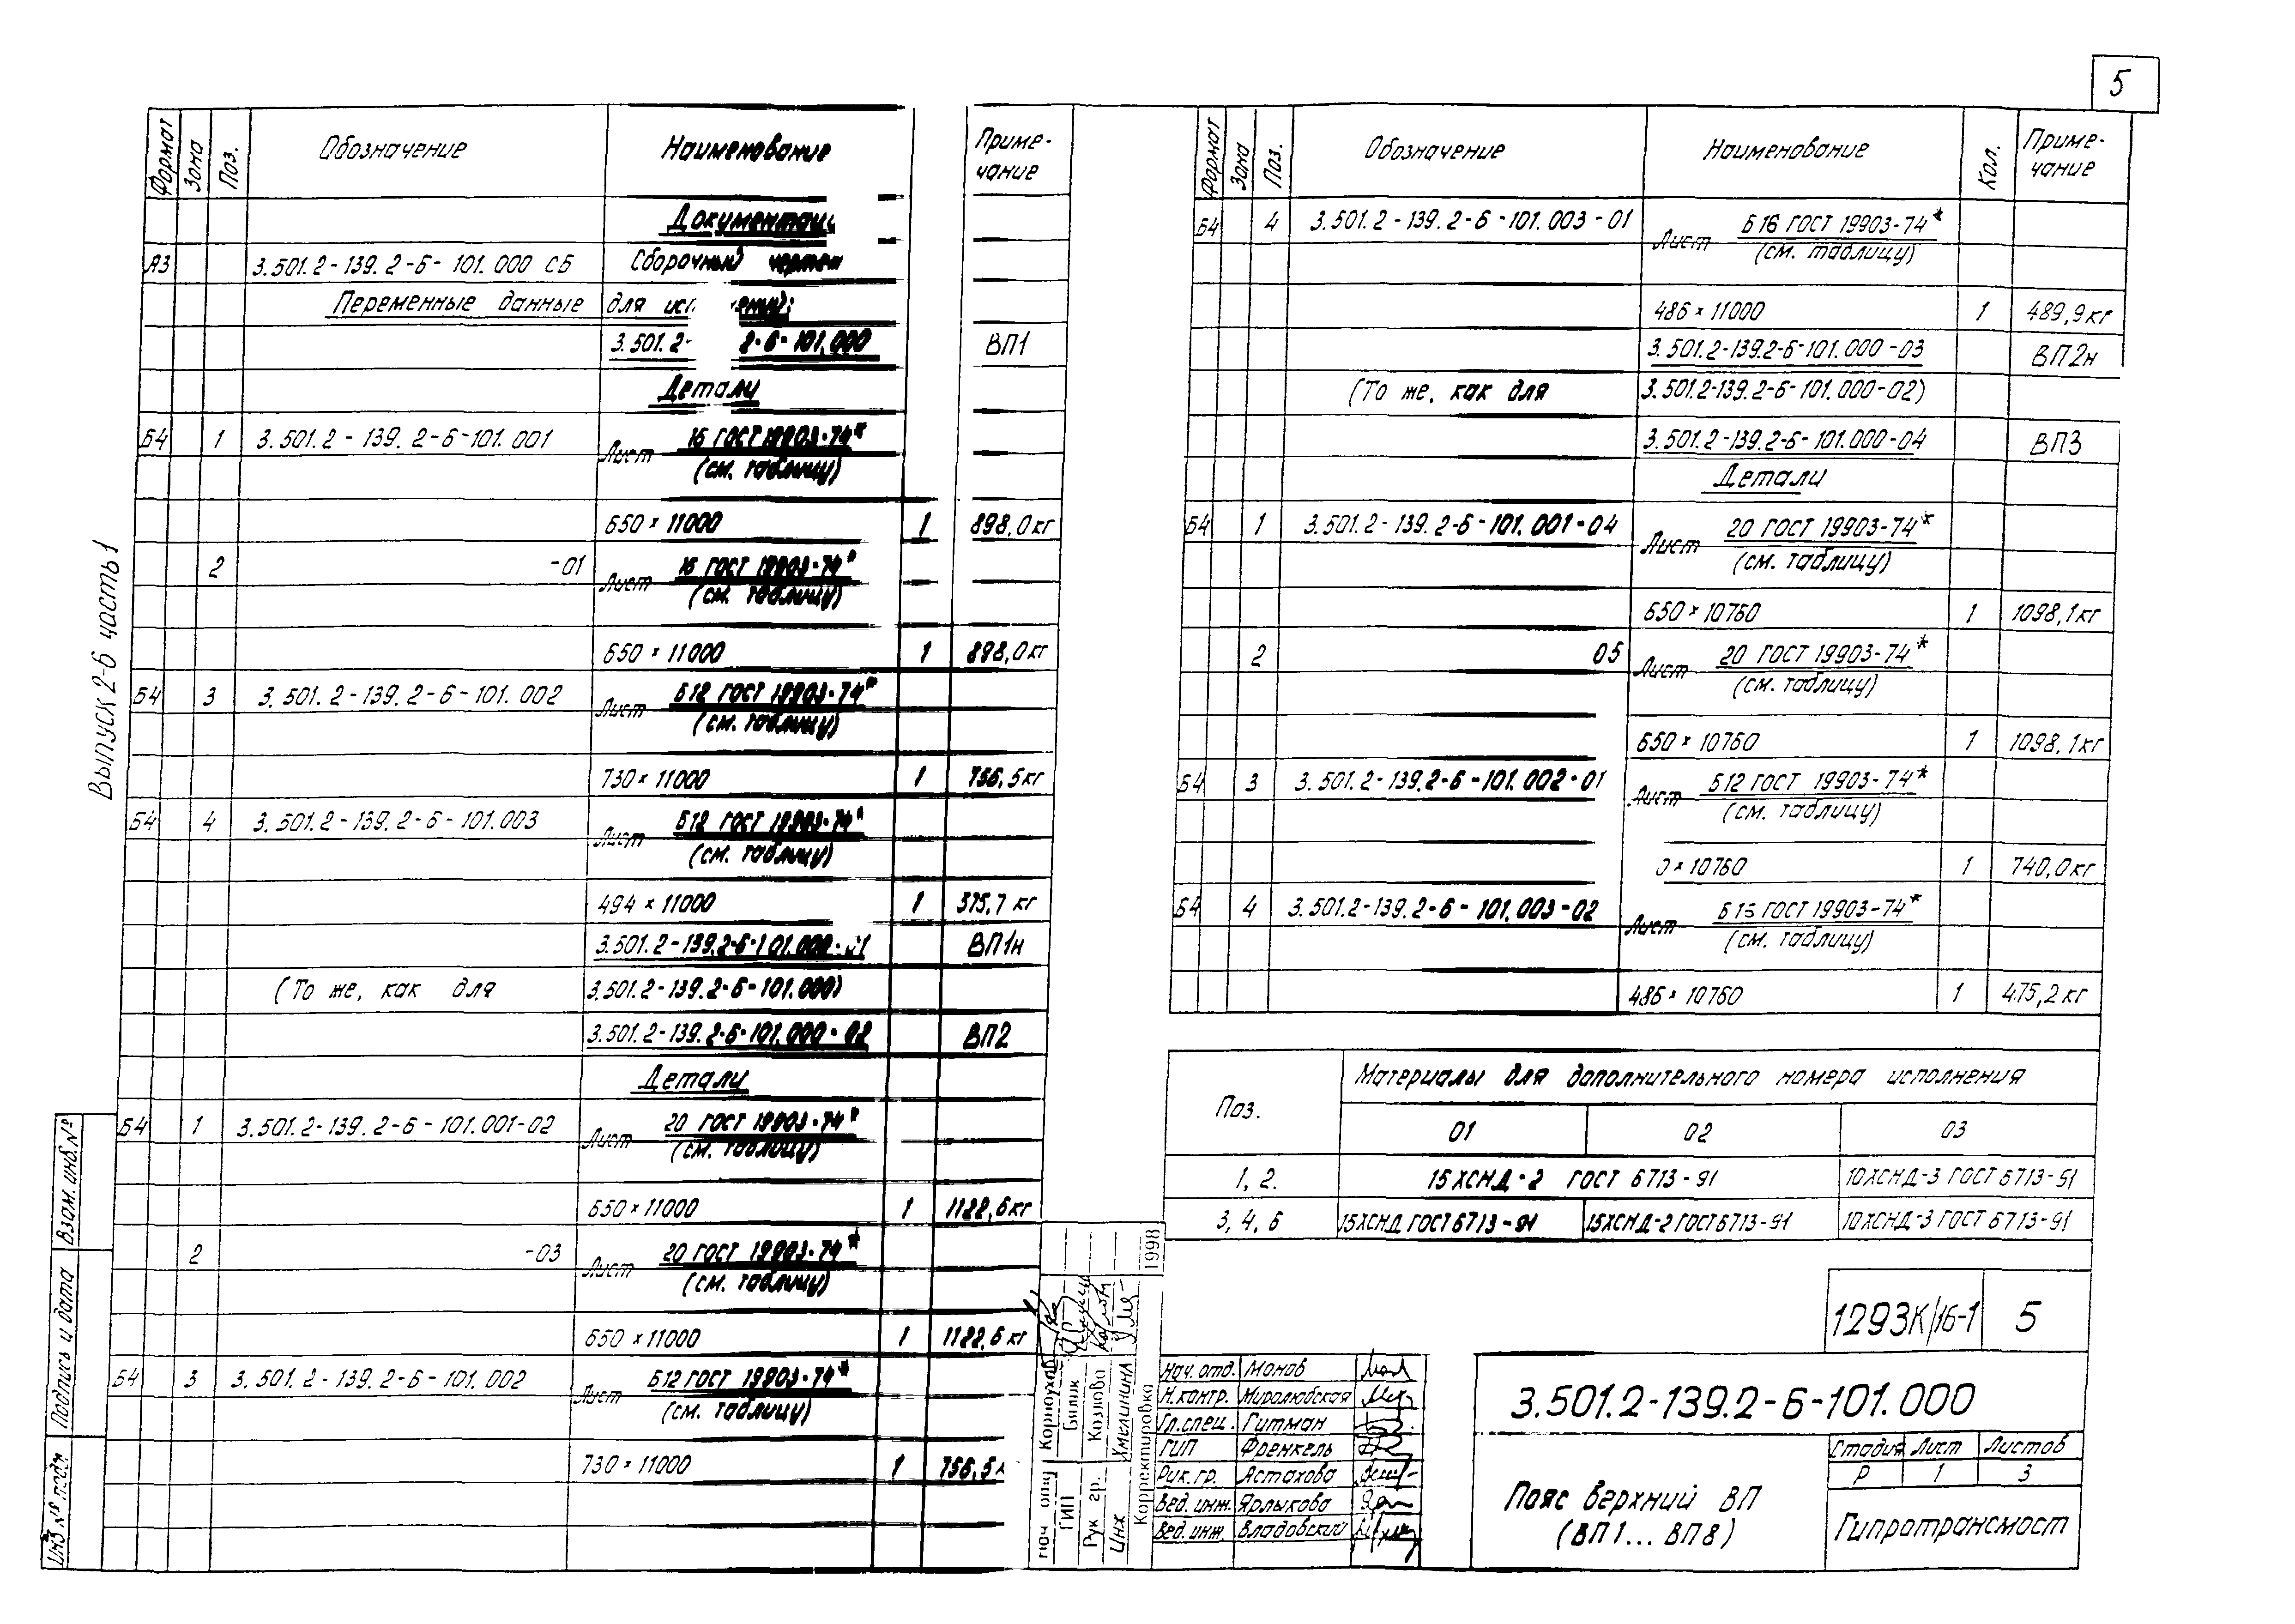 5
Выпуск 2-6 часть 1
Формат Зона Поз. Обозначение Наименование Приме-чание
Документаци
А3 3.501.2-139.2-6-101.000 СБ Сборочный чертеж
Переменные данные для исп
3.501.2- 2-6-101.000 ВП1
Детали
Б4 1 3.501.2-139.2-6-101.001 Лист 16 ГОСТ 19903-74*
(см. таблицу)
650×11000 1 898,0кг
2 -01 Лист 16 ГОСТ 19903-74*
(см. таблицу)
650×11000 1 898,0кг
Б4 3 3.501.2-139.2-6-101.002 Лист Б12 ГОСТ 19903-74*
(см. таблицу)
730×11000 1 756,5кг
Б4 4 3.501.2-139.2-6-101.003 Лист Б12 ГОСТ 19903-74*
(см. таблицу)
494×11000 1 375,7 кг
3.501.2-139.2-6-101.000-01 ВП1н
(То же, как для 3.501.2-139.2-6-101.000)
3.501.2-139.2-6-101.000-02 ВП2
Детали
Б4 1 3.501.2-139.2-6-101.001-02 Лист 20 ГОСТ 19903-74*
(см. таблицу)
650×11000 1 1122,6кг
2 -03 Лист 20 ГОСТ 19903-74*
(см. таблицу)
650×11000 1 1122,6 кг
Б4 3 3.501.2-139.2-6-101.002 Лист Б12 ГОСТ 19903-74*
(см. таблицу)
730×11000 1 756,5к
Формат Зона Поз. Обозначение Наименование Кол. Приме-чание
Б4 4 3.501.2-139.2-6-101.003-01 Лист Б16 ГОСТ 19903-74*
(см. таблицу)
486×11000 1 489,9кг
3.501.2-139.2-6-101.000-03 ВП2н
(То же, как для 3.501.2-139.2-6-101.000-02)
3.501.2-139.2-6-101.000-04 ВП3
Детали
Б4 1 3.501.2-139.2-6-101.001-04 Лист 20 ГОСТ 19903-74*
(см. таблицу)
650×10760 1 1098,1кг
2 05 Лист 20 ГОСТ 19903-74*
(см. таблицу)
650×10760 1 1098,1кг
Б4 3 3.501.2-139.2-6-101.002-01 Лист Б12 ГОСТ 19903-74*
(см. таблицу)
0×10760 1 740,0кг
Б4 4 3.501.2-139.2-6-101.003-02 Лист Б16 ГОСТ 19903-74*
(см. таблицу)
486×10760 1 475,2кг
Поз. Материалы для дополнительного номера исполнения
01 02 03
1, 2. 15ХСНД-2 ГОСТ 6713-91 10ХСНД-3 ГОСТ 6713-91
3, 4, 6 15ХСНД ГОСТ 6713-91 15ХСНД-2 ГОСТ 6713-91 10ХСНД-3 ГОСТ 6713-91
1293К/16-1 5
Нач. отд. Монов
Н.контр. Миролюбская
Гл.спец. Гитман
ГИП Френкель
Рук.гр. Астахова
Вед. инж. Ярлыкова
Вед.инж. Владовский
3.501.2-139.2-6-101.000
Пояс верхний ВП
(ВП1... ВП8)
Стадия Лист Листов
Р 1 3
Гипротрансмост
ГИП Билик
Рук гр. Козлова
Инж Хмелинина
Корректировка 1998
Взам. инв.№
Подпись и дата
Инв № подл